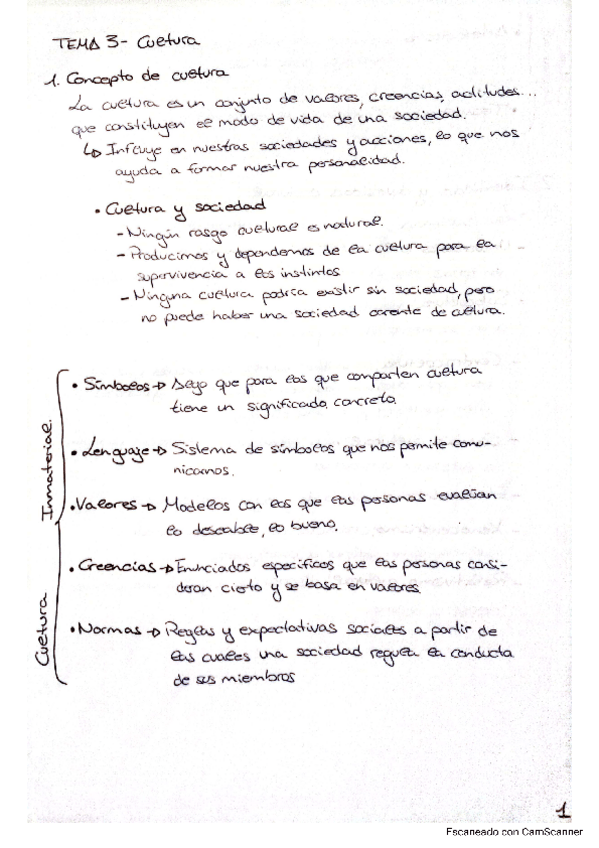 TEMA 3- Cultura
1. Concepto de cultura
La cultura es un conjunto de valores, creencias, actitudes...
que constituyen el modo de vida de una sociedad.
↳ Influye en nuestras sociedades y acciones, lo que nos
ayuda a formar nuestra personalidad.
• Cultura y sociedad
- Ningún rasgo cultural es natural.
- Producimos y dependemos de la cultura para la
supervivencia a los instintos
- Ninguna cultura podría existir sin sociedad, pero
no puede haber una sociedad carente de cultura.
Cultura Inmaterial.
• Símbolos → Algo que para los que comparten cultura
tiene un significado concreto.
• Lenguaje → Sistema de símbolos que nos permite comu-
nicarnos.
• Valores → Modelos con los que las personas evalúan
lo deseable, lo bueno.
• Creencias → Enunciados específicos que las personas consi-
deran cierto y se basa en valores
• Normas → Reglas y expectativas sociales a partir de
las cuales una sociedad regula la conducta
de sus miembros
1
Escaneado con CamScanner